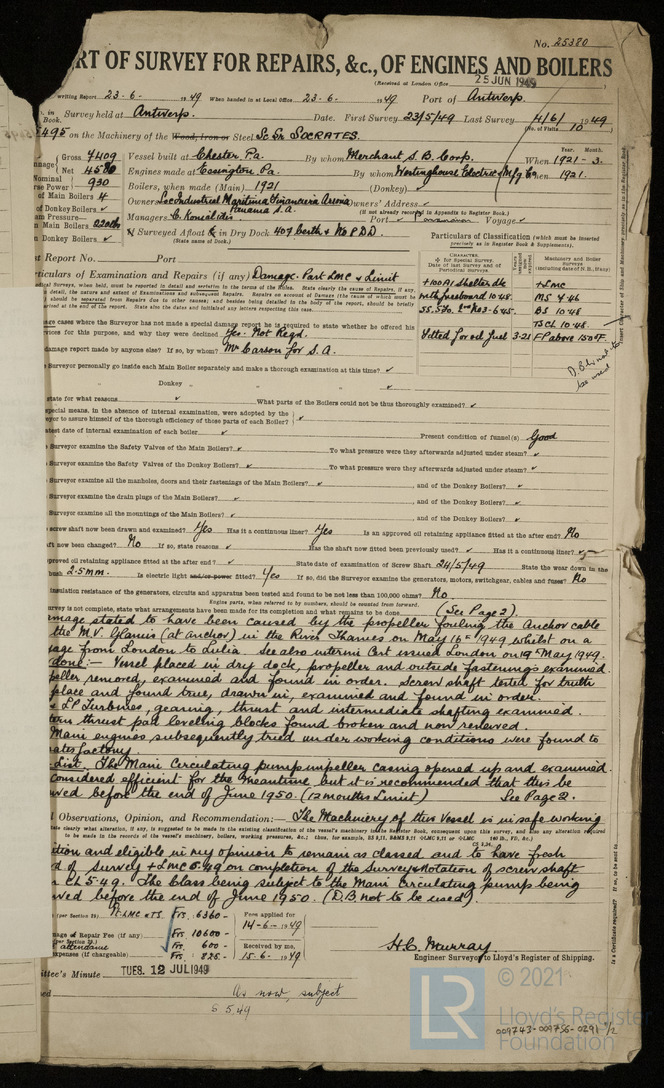 No. 25380
RT OF SURVEY FOR REPAIRS, &c., OF ENGINES AND BOILERS
(Received at London Office 25 JUN 1949
writing Report 23-6- 1949 When handed in at Local Office 23-6- 1949 Port of Antwerp.
in Book. Survey held at Antwerp. Date. First Survey 23/5/49 Last Survey 4/6/1949
(No. of Visits 10
5495 on the Machinery of the Wood, Iron or Steel Sc Sr SOCRATES.
Gross 7409 Vessel built at Chester. Pa. By whom Merchant S. B. Corp. When 1921 - 3.
Net 4580 Engines made at Essington Pa. By whom Westinghouse Electric & Mfg Co when 1921.
Nominal Horse Power 930 Boilers, when made (Main) 1921 (Donkey) ✓
of Main Boilers 4 Owners Soc Industrial Maritima Financiera Ariona Panama S.A. Owners' Address ✓
(If not already recorded in Appendix to Register Book.)
of Donkey Boilers ✓ Managers C. Konialidis Port ✓ Voyage ✓
am Pressure—
Main Boilers 220 lbs
n Donkey Boilers ✓ Surveyed Afloat & in Dry Dock 407 berth & No P.D.D.
(State name of Dock.)
Particulars of Classification (which must be inserted
precisely as in Register Book & Supplements).
t Report No. Port
CHARACTER
for Special Survey.
Date of last Survey and of
Periodical Surveys.
Machinery and Boiler
Surveys
(including date of N.B., if any)
+100A1 Shelter dk
with freeboard 10.48.
SS. 2nd No3-6.45.
Fitted for oil fuel 3-21 F.P. above 150°F.
+LMC
MS 4.46
BS 10.48
TSCL 10.48
D.B. not to be used
rticulars of Examination and Repairs (if any) Damage. Part LMC & Limit
age cases where the Surveyor has not made a special damage report he is required to state whether he offered his
vices for this purpose, and why they were declined Yes. Not Reqd.
damage report made by anyone else? If so, by whom? Mr Carson for S.A.
Surveyor personally go inside each Main Boiler separately and make a thorough examination at this time? ✓
Donkey „ „ „ „ ✓
state for what reasons ✓ What parts of the Boilers could not be thoroughly examined? ✓
special means, in the absence of internal examination, were adopted by the
eyor to assure himself of the thorough efficiency of those parts of each Boiler? ✓
test date of internal examination of each boiler ✓ Present condition of funnel(s) Good
Surveyor examine the Safety Valves of the Main Boilers? ✓ To what pressure were they afterwards adjusted under steam? ✓
Surveyor examine the Safety Valves of the Donkey Boilers? ✓ To what pressure were they afterwards adjusted under steam? ✓
Surveyor examine all the manholes, doors and their fastenings of the Main Boilers? ✓, and of the Donkey Boilers? ✓
Surveyor examine the drain plugs of the Main Boilers? ✓, and of the Donkey Boilers? ✓
Surveyor examine all the mountings of the Main Boilers? ✓, and of the Donkey Boilers? ✓
screw shaft now been drawn and examined? Yes Has it a continuous liner? Yes Is an approved oil retaining appliance fitted at the after end? No
aft now been changed? No If so, state reasons ✓ Has the shaft now fitted been previously used? ✓ Has it a continuous liner? ✓
pproved oil retaining appliance fitted at the after end? ✓ State date of examination of Screw Shaft 24/5/49 State the wear down in the
bush 2.5mm. Is electric light and/or power fitted? Yes If so, did the Surveyor examine the generators, motors, switchgear, cables and fuses? No
insulation resistance of the generators, circuits and apparatus been tested and found to be not less than 100,000 ohms? No.
Engine parts, when referred to by numbers, should be counted from forward.
urvey is not complete, state what arrangements have been made for its completion and what remains to be done (See Page 2)
mage stated to have been caused by the propeller fouling the Anchor cable
the M.V. Glamis (at anchor) in the River Thames on May 16th 1949 whilst on a
sage from London to Lulea. See also interim Cert issued London on 19th May 1949.
done:— Vessel placed in dry dock, propeller and outside fastenings examined.
peller removed, examined and found in order. Screw shaft tested for truth
place and found true, drawn in, examined and found in order.
& LP Turbines, gearing, thrust and intermediate shafting examined.
tern thrust pad leveling blocks found broken and now renewed.
Main engines subsequently tried under working conditions were found to
satisfactory.
Limit. The Main Circulating pump impeller casing opened up and examined.
Considered efficient for the meantime but it is recommended that this be
wed before the end of June 1950. (12 months Limit) See Page 2.
l Observations, Opinion, and Recommendation:— The Machinery of this Vessel is in safe working
ition and eligible in my opinion to remain as classed and to have fresh
d of Survey +LMC 5.49 on completion of the Survey & notation of screw shaft
CL 5.49. The Class being subject to the Main Circulating pump being
wed before the end of June 1950. (D.B. not to be used).
(per Section 29) Pt. LMC & TS Frs. 6360- Fees applied for
14-6-1949
age of Repair Fee (if any) Frs. 10600-
attendance Frs. 600- Received by me,
xpenses (if chargeable) Frs. 825- 15-6-1949
H.C. Murray
Engineer Surveyor to Lloyd's Register of Shipping.
ittee's Minute TUES. 12 JUL 1949
As now, subject
S 5.49
Is a Certificate required? If so, to be sent to
© 2021
LR
Lloyd's Register
Foundation
009743-009756-0291 1/2